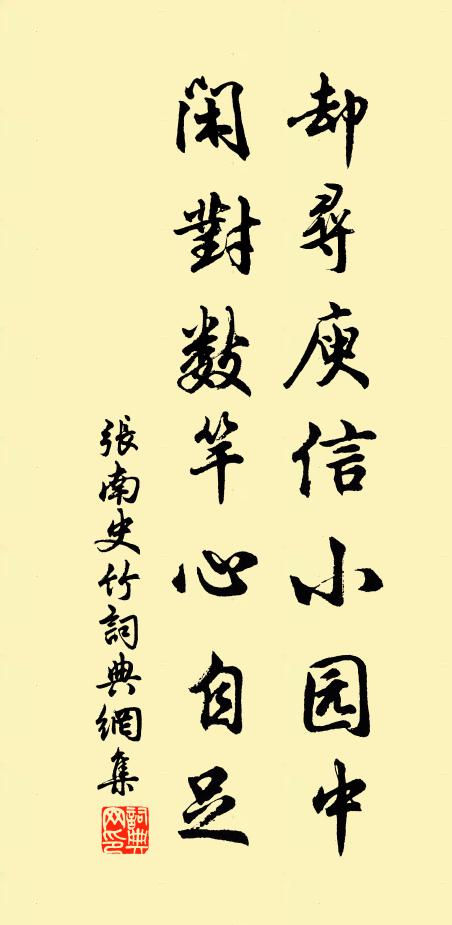 却尋庾信小园中
閑對數竿心自足
張南史竹詞典網集
詞典网印